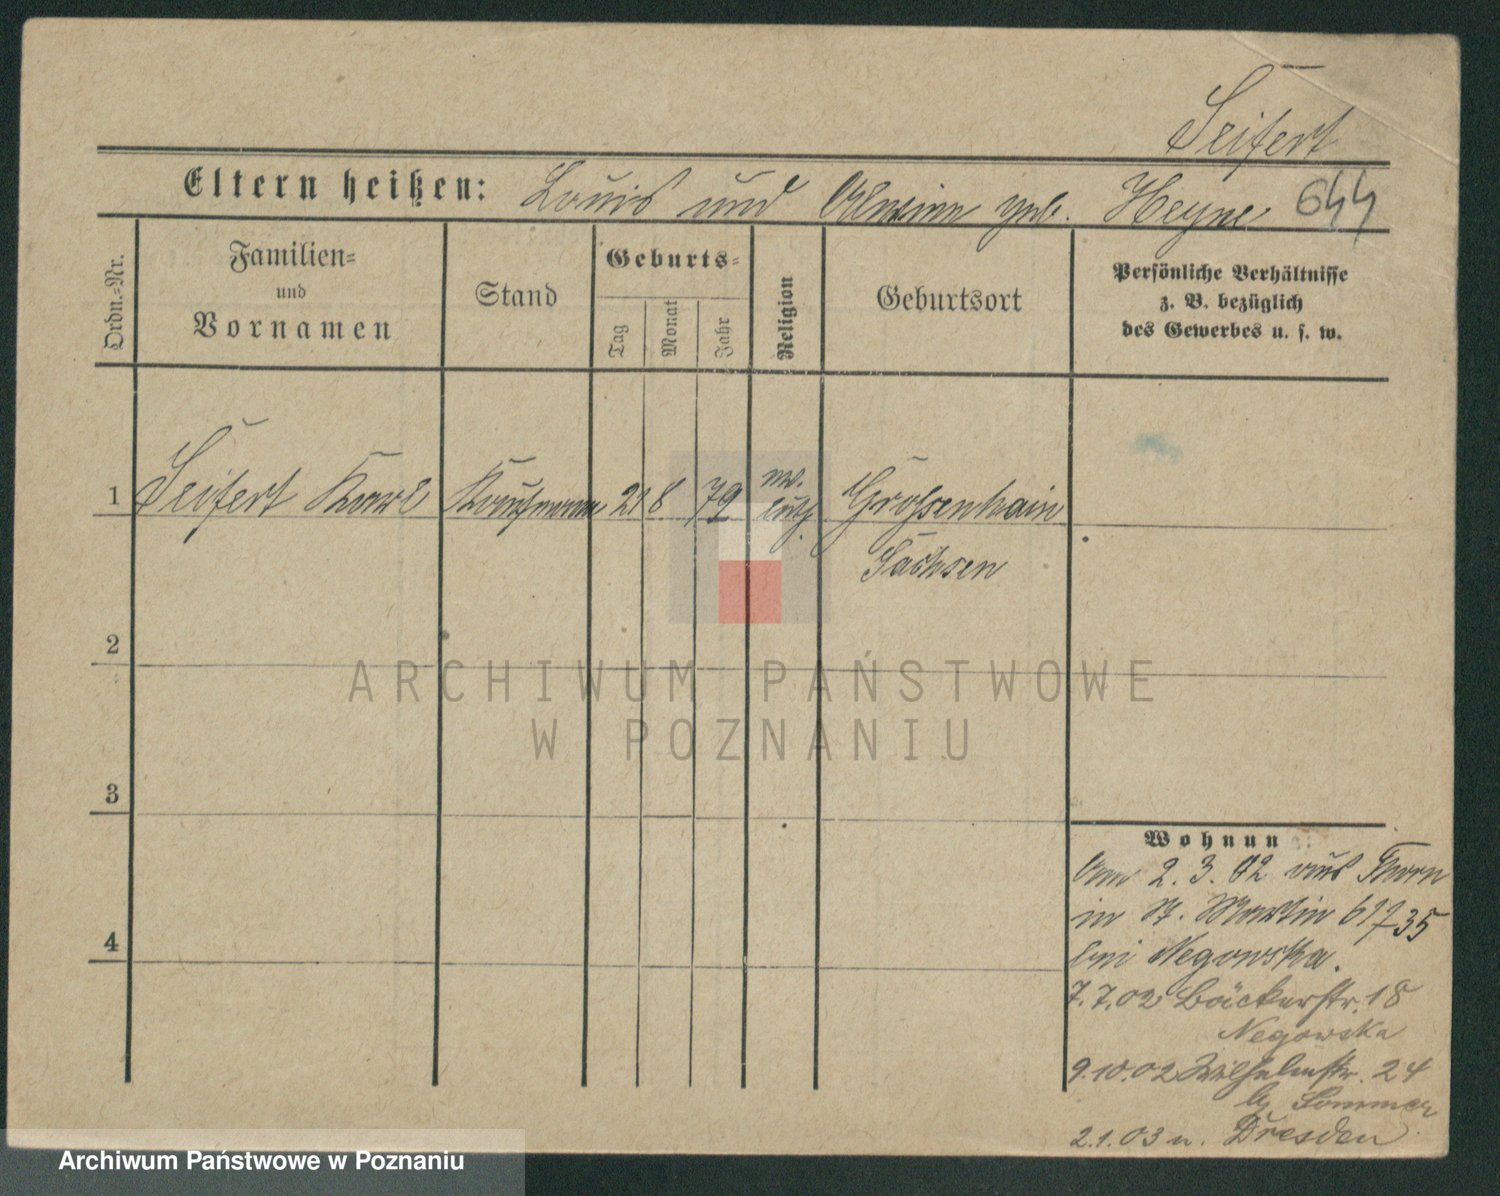 Seifert
Eltern heißen: Louis und Alwine geb. Heyne 644
Ordn.=Nr.
Familien=
und
Vornamen
Stand
Geburts=
Tag
Monat
Jahr
Religion
Geburtsort
Persönliche Verhältnisse
z. B. bezüglich
des Gewerbes u. s. w.
1 Seifert Karl Kaufmann 21 8 79 ev. Großenhain
luth. Sachsen
2
3
4
Wohnun
Am 2.3.02 aus Thorn
in St. Martin 61 35
bei Negowska.
7.7.02 Bäckerstr. 18
Negowska
9.10.02 Wilhelmstr. 24
by Sommer
2.1.03 n. Dresden
ARCHIWUM PAŃSTWOWE
W POZNANIU
Archiwum Państwowe w Poznaniu